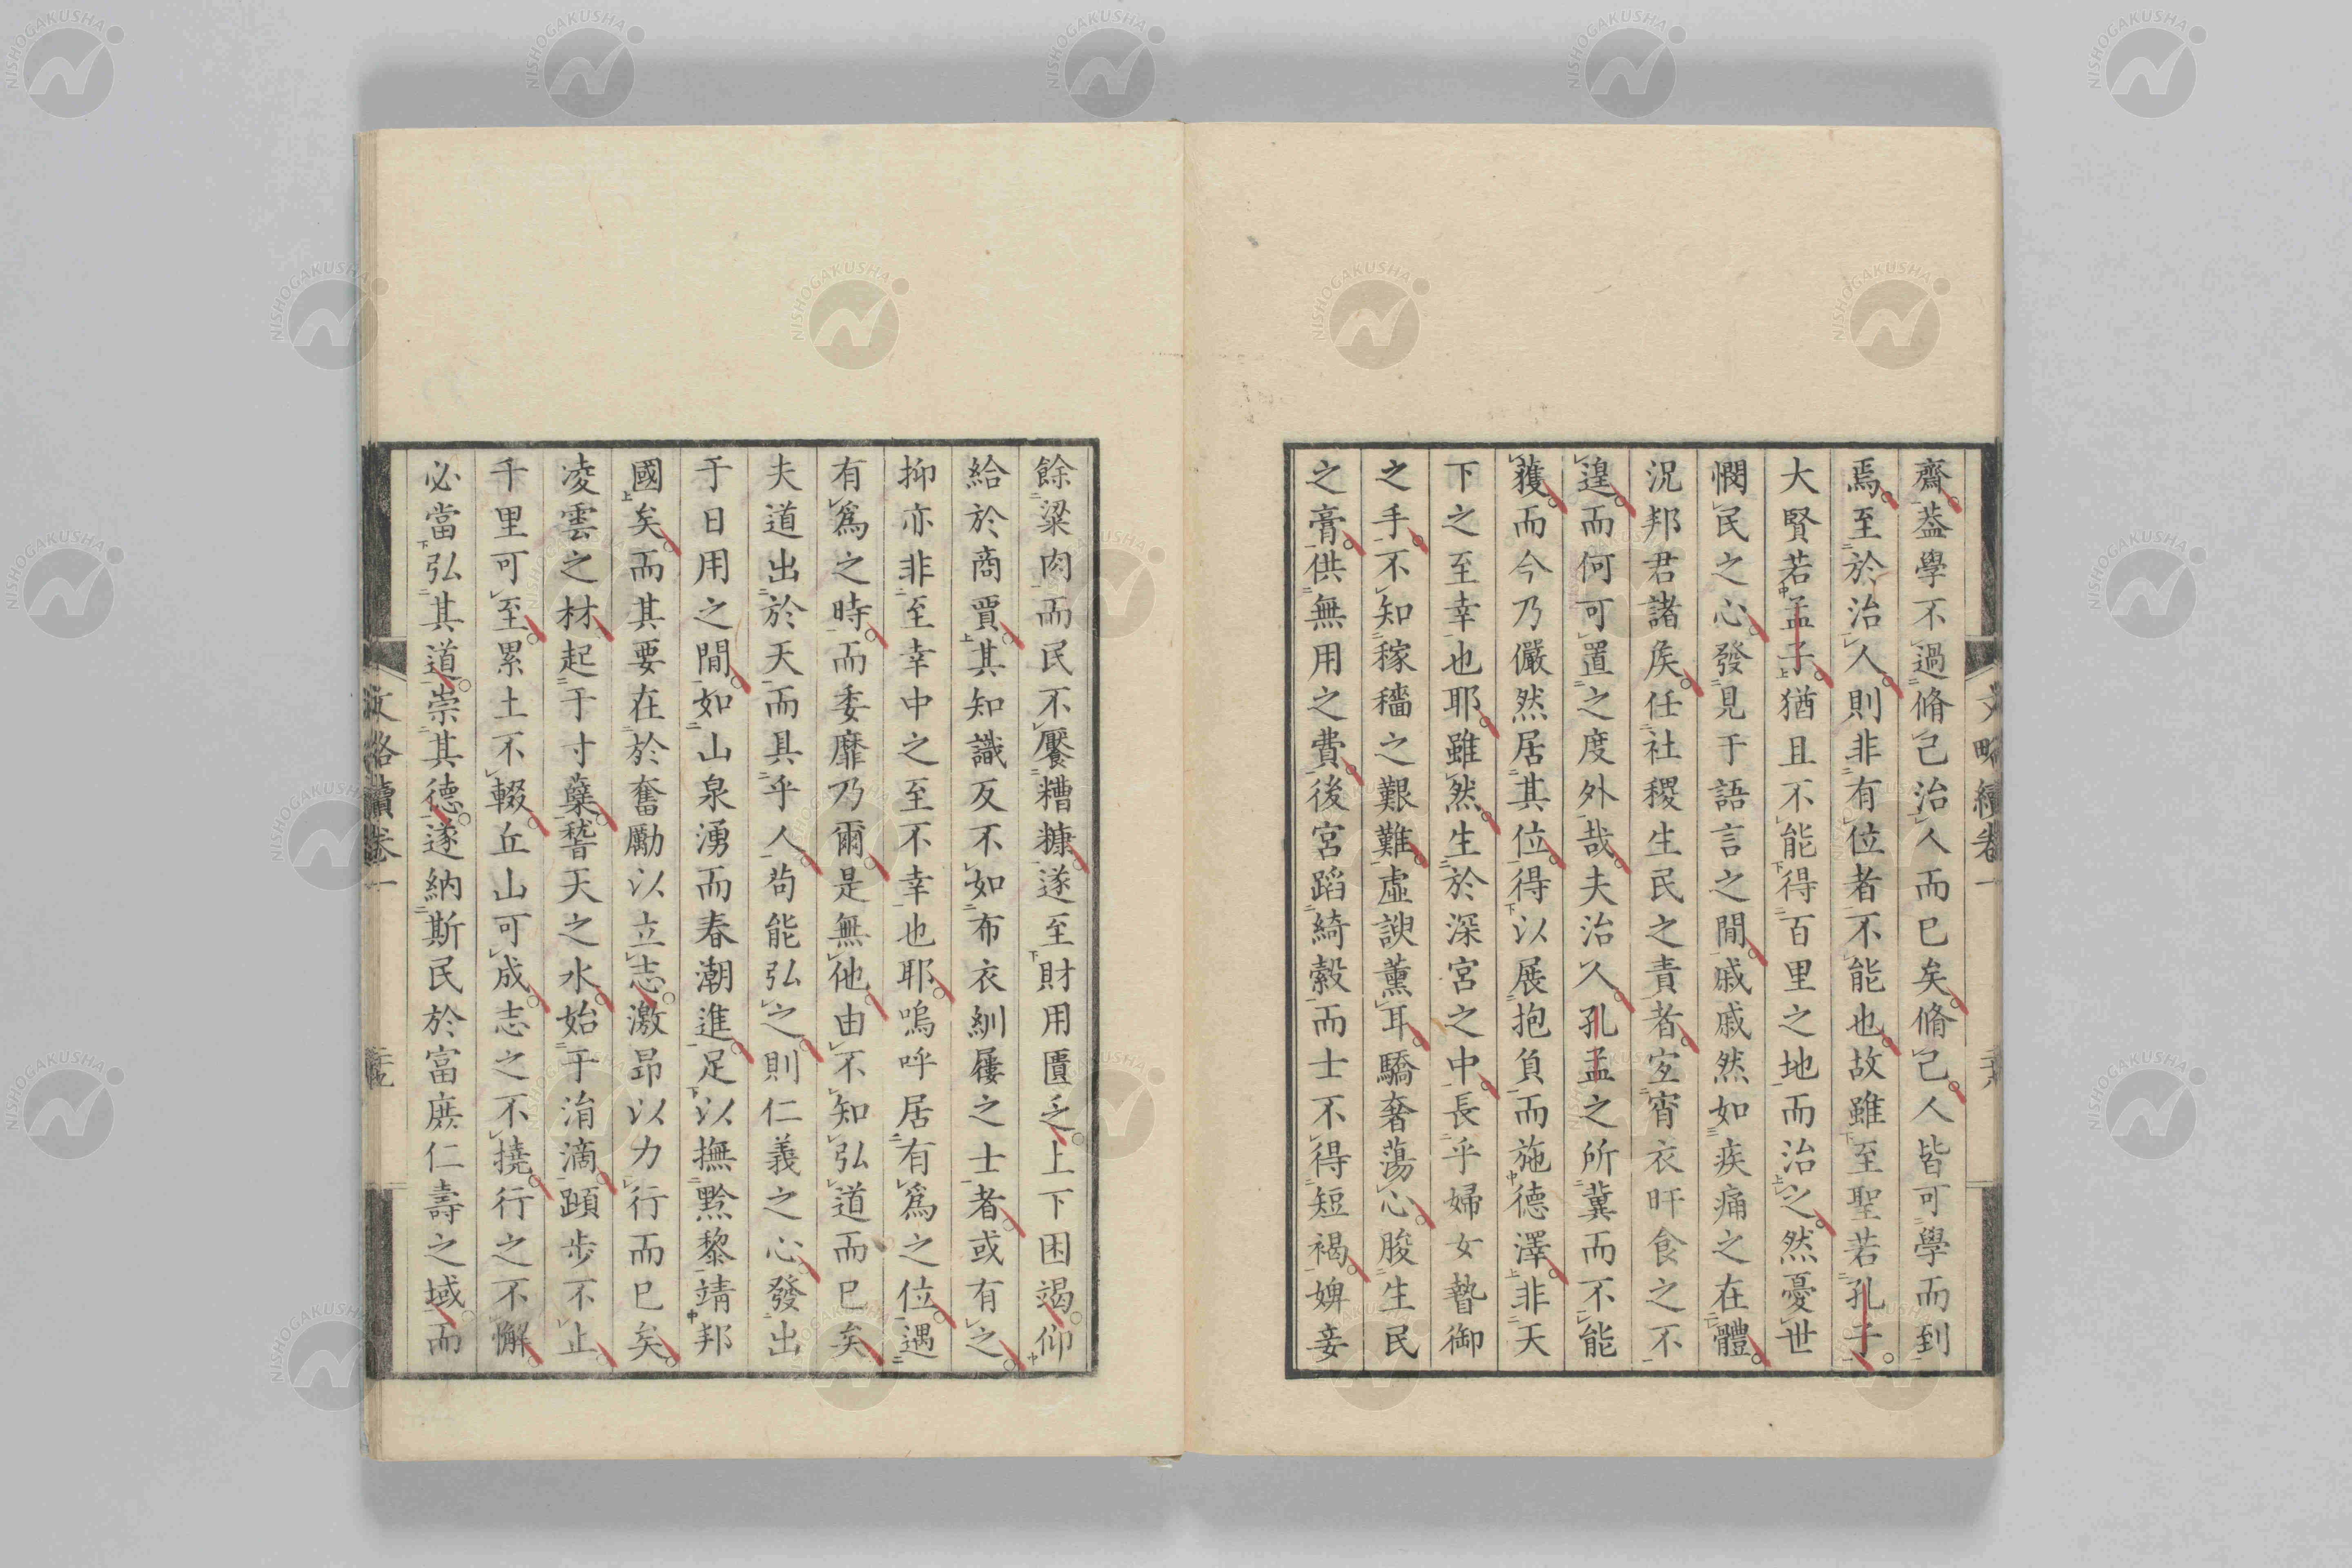 齋蓋學不過脩己治人而已矣脩己人皆可學而到
焉至於治人則非有位者不能也故雖至聖若孔子
大賢若孟子猶且不能得百里之地而治之然憂世
憫民之心發見于語言之間戚戚然如疾痛之在體
況邦君諸矦任社稷生民之責者宜宵衣旰食之不
遑而何可置之度外哉夫治人孔孟之所冀而不能
獲而今乃儼然居其位得以展抱負而施德澤非天
下之至幸也耶雖然生於深宮之中長乎婦女暬御
之手不知稼穡之艱難虛諛薰耳驕奢蕩心朘生民
之膏供無用之費後宮蹈綺縠而士不得短褐婢妾
餘粱肉而民不饜糟糠遂至財用匱乏上下困竭仰
給於商賈其知識反不如布衣紃屨之士者或有之
抑亦非至幸中之至不幸也耶嗚呼居有爲之位遇
有爲之時而委靡乃爾是無他由不知弘道而已矣
夫道出於天而具乎人苟能弘之則仁義之心發出
于日用之間如山泉湧而春潮進足以撫黔黎靖邦
國矣而其要在於奮勵以立志激昂以力行而已矣
凌雲之材起于寸蘖稽天之水始于涓滴蹞步不止
千里可至累土不輟丘山可成志之不撓行之不懈
必當弘其道崇其德遂納斯民於富庶仁壽之域而
文略續卷一
NISHOGAKUSHA